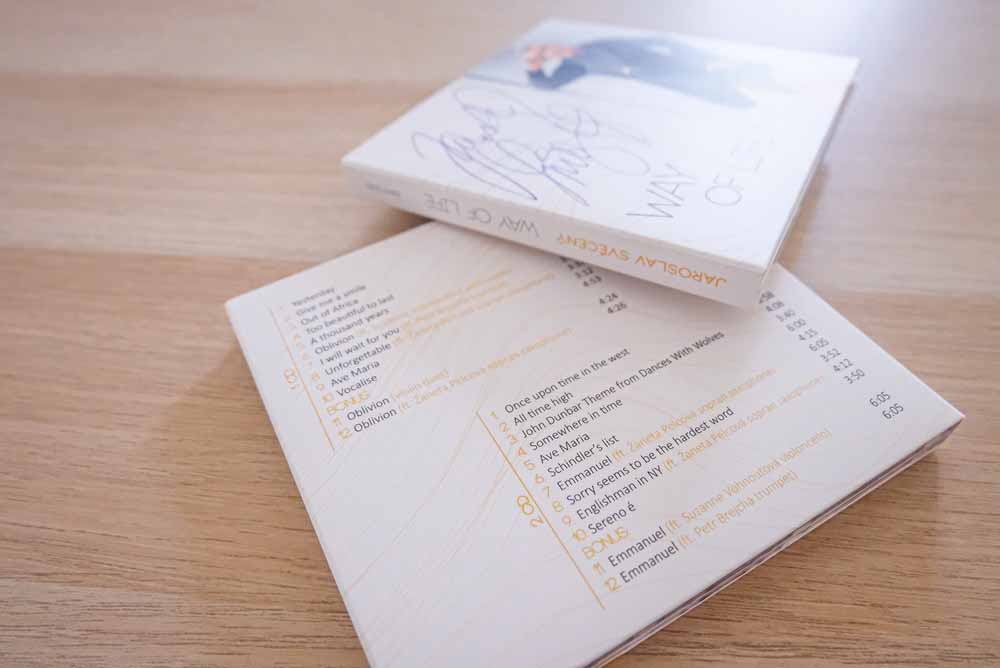 WAY
OF
JAROSLAV SVĚCENÝ WAY OF LIFE
Yesterday
Give me a smile
Out of Africa
Too beautiful to last
A thousand years
6 Oblivion (ft.
7 I will wait for you
8 Unforgettable (ft.
9 Ave Maria
10 Vocalise
BONUS:
11 Oblivion (violin duet)
12 Oblivion (ft. Žaneta Pelcová soprán saxophone)
3:12
4:53
4:24
4:26
1
1 Once upon time in the west
2 All time high
3 John Dunbar Theme from Dances With Wolves
4 Somewhere in time
5 Ave Maria
6 Schindler's list
7 Emmanuel (ft. Žaneta Pelcová soprán saxophone)
8 Sorry seems to be the hardest word
9 Englishman in NY (ft. Žaneta Pelcová soprán saxophone)
10 Sereno é
BONUS:
11 Emmanuel (ft. Suzanne Vohnoutová violoncello)
12 Emmanuel (ft. Petr Brejcha trumpet)
4:08
3:40
6:00
4:15
6:05
3:52
4:12
3:50
6:05
6:05
2